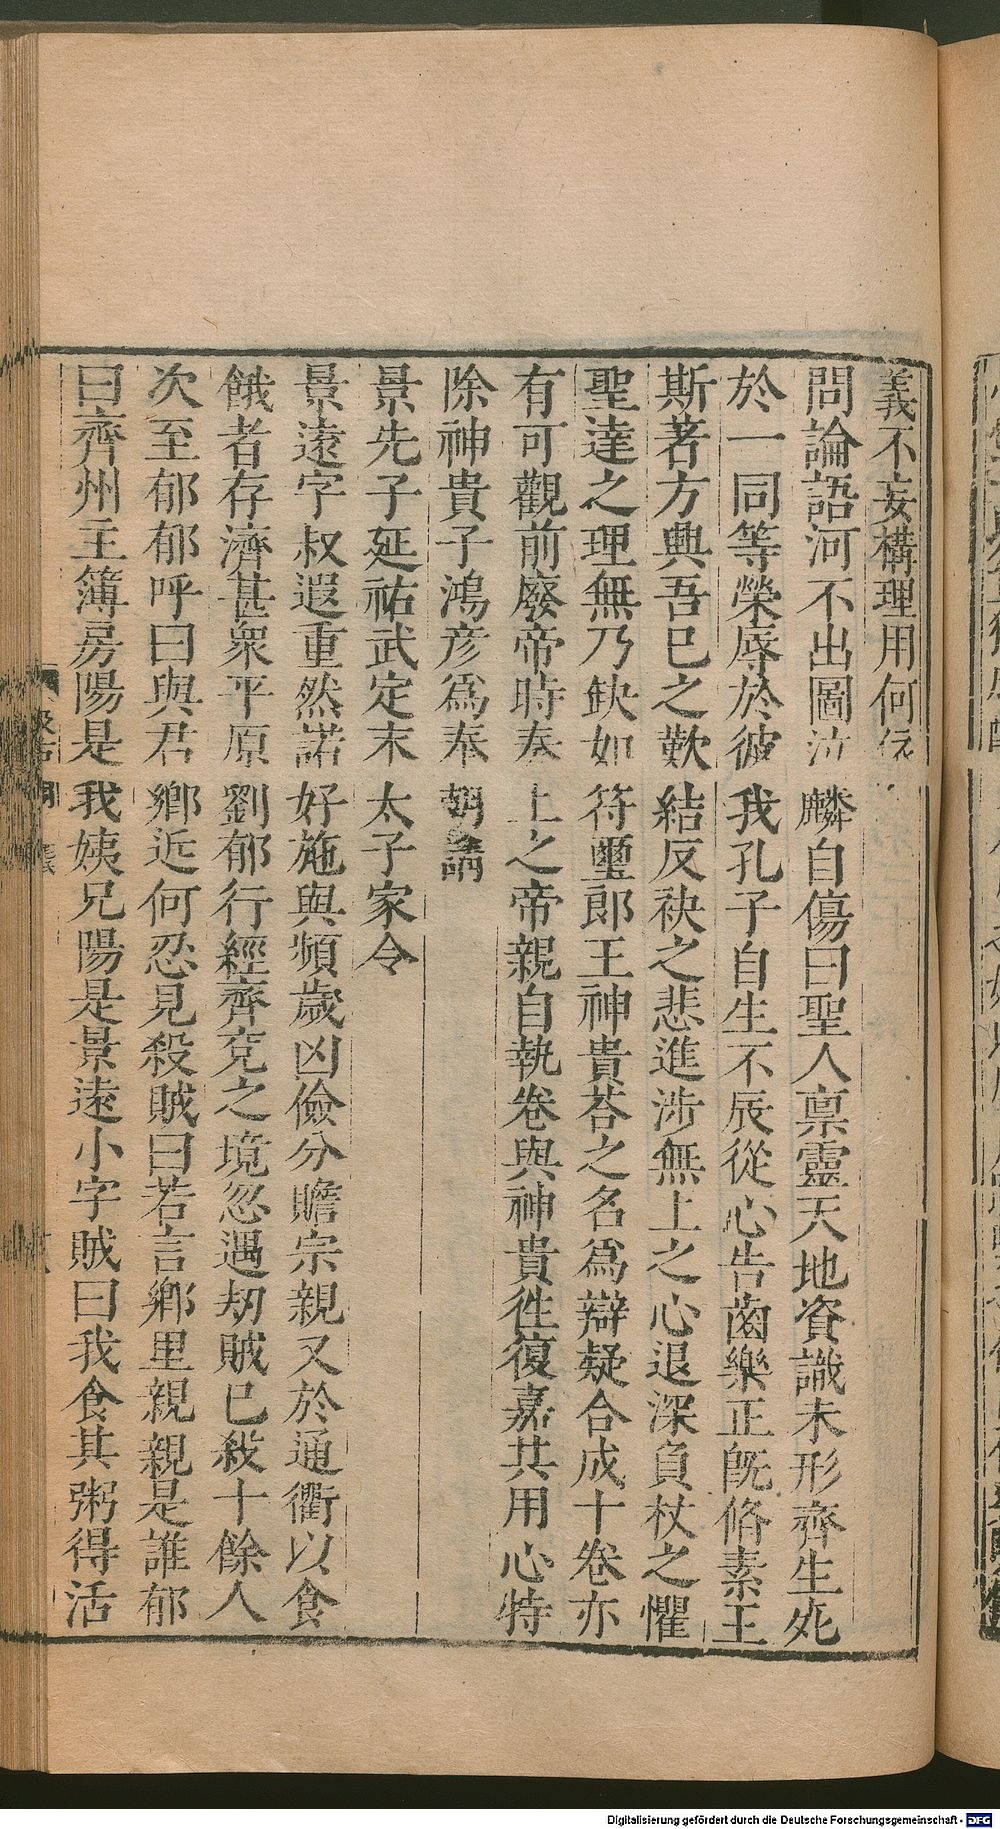 義不妄構理用何依
問論語河不出圖泣麟自傷曰聖人禀靈天地資識未形齊生死
於一同等榮辱於彼我孔子自生不辰從心告齒樂正旣脩素王
斯著方興吾已之歎結反袂之悲進涉無上之心退深負杖之懼
聖達之理無乃缺如符璽郎王神貴荅之名爲辯疑合成十卷亦
有可觀前廢帝時奏上之帝親自執卷與神貴徃復嘉其用心特
除神貴子鴻彦爲奉朝請
景先子延祐武定末太子家令
景遠字叔遐重然諾好施與頻歲凶儉分贍宗親又於通衢以食
餓者存濟甚衆平原劉郁行經齊兖之境忽遇刼賊已殺十餘人
次至郁郁呼曰與君鄉近何忍見殺賊曰若言鄉里親親是誰郁
曰齊州主簿房陽是我姨兄陽是景遠小字賊曰我食其粥得活
Digitalisierung gefördert durch die Deutsche Forschungsgemeinschaft - DFG